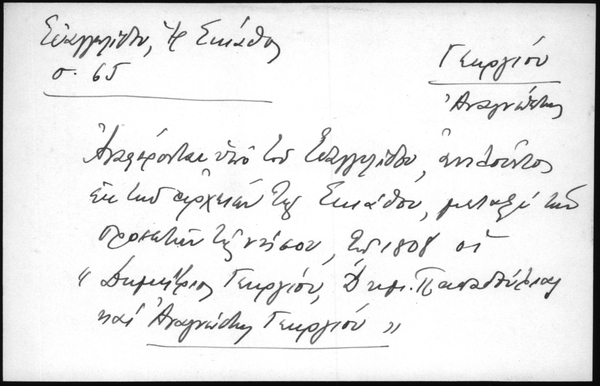 Εὐαγγελίδου, Ἡ Σκιάθος
σ. 65
Γεωργίου
Ἀναγνώστης
Ἀναφέρονται ὑπὸ τοῦ Εὐαγγελίδου, ἀντλοῦντος
ἐκ τῶν ἀρχείων τῆς Σκιάθου, μεταξὺ τῶν
προκρίτων τῆς νήσου, τῷ 1808 οἱ
« Δημήτριος Γεωργίου, Δημ. Παπαθύμιας
καὶ Ἀναγνώστης Γεωργίου »